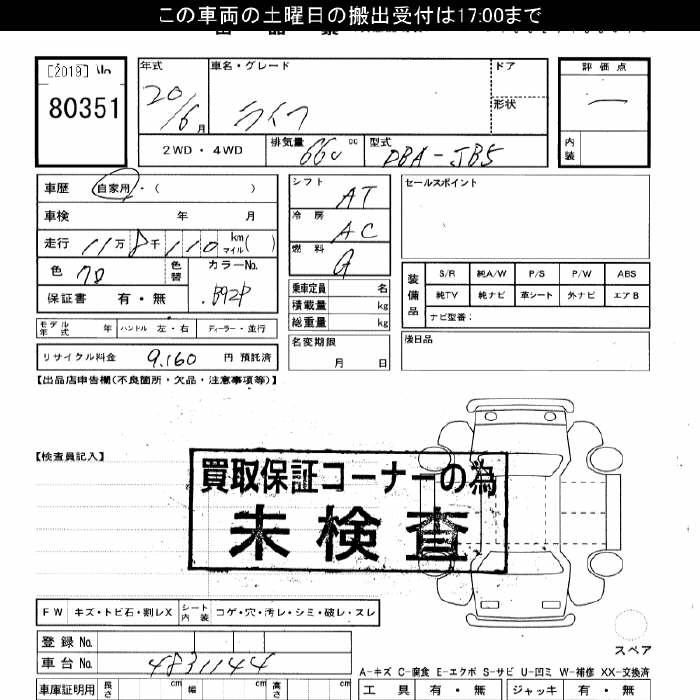 この車両の土曜日の搬出受付は17:00まで
[2019] No
80351
年式 20/6月
車名・グレード ライフ
ドア
形状
評価点 一
内装
2WD・4WD
排気量 660 cc
型式 DBA-JB5
車歴 自家用・( )
車検 年 月
走行 11万 8千 110 km マイル( )
色 クロ 色替
カラーNo. B92P
保証書 有・無
モデル年式 年 ハンドル 左・右 ディーラー・並行
リサイクル料金 9,160 円 預託済
シフト AT
冷房 AC
燃料 G
乗車定員 名
積載量 kg
総重量 kg
名変期限
月 日
セールスポイント
装備品 S/R 純A/W P/S P/W ABS
純TV 純ナビ 革シート 外ナビ エアB
ナビ型番:
後日品
【出品店申告欄(不良箇所・欠品・注意事項等)】
【検査員記入】
買取保証コーナーの為
未検査
FW キズ・トビ石・割レX シート内装 コゲ・穴・汚レ・シミ・破レ・スレ
登録 No.
車台 No. 4831144
スペア
A-キズ C-腐食 E-エクボ S-サビ U-凹ミ W-補修 XX-交換済
車庫証明用 長さ cm 幅 cm 高さ cm
工具 有・無 ジャッキ 有・無